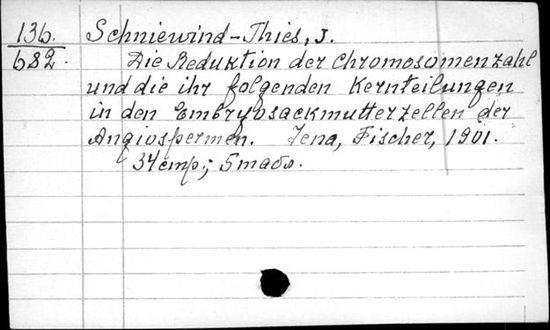 136. Schniewind-Thies, J.
682. Die Reduktion der Chromosomenzahl
und die ihr folgenden Kernteilungen
in den Embryosackmutterzellen der
Angiospermen. Jena, Fischer, 1901.
34 стр.; 5 табл.